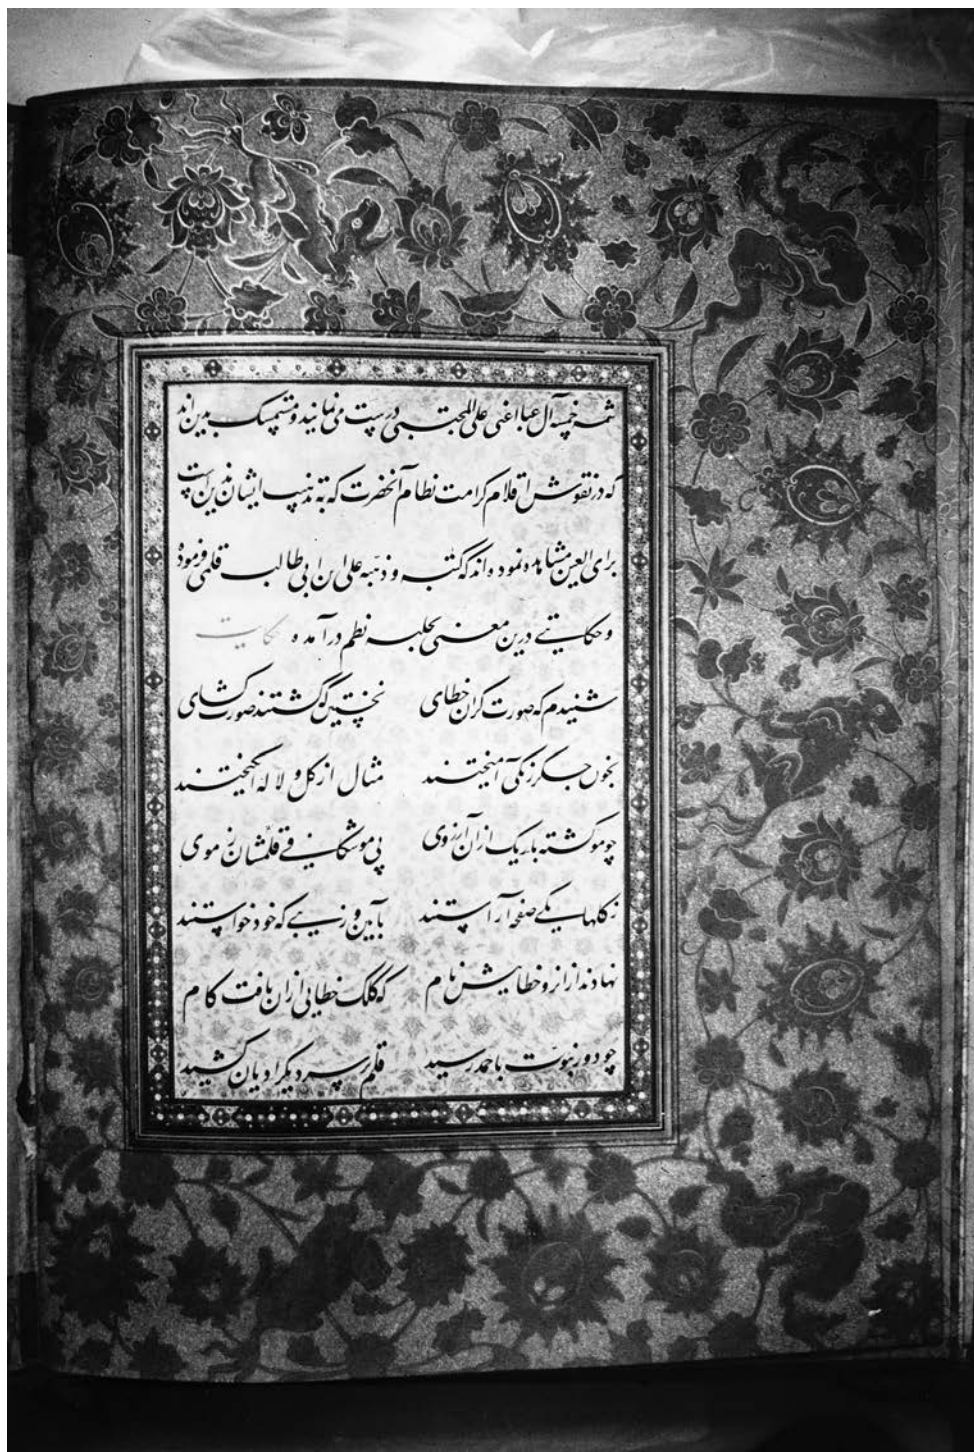 ثمر خمسه آل عبا اعنی علی المجتبی درست می‌نمایند و متمسک بدین‌اند
که در نقوش اقلام کرامت نظام آنحضرت که به تذهیب ایشان مذین است
برای العین مشاهده نموده‌اند که کتبه و ذهبه علی ابن ابی طالب قلمی فرموده
و حکایتی درین معنی بحلیه نظم درآمده حکایت
شنیدم که صورت کران خطای نخستین که گشتند صورت کشای
بخون جکر رنکی آمیختند مثال از کل و لاله انکیختند
چو مو گشته باریک ازان آرزوی پی مو شکافی قلمشان ز موی
ز کلها یکی صفحه آراستند بآیین و زیبی که خود خواستند
نهادند ازانرو خطاییش نام که کلک خطایی ازان یافت کام
چو دور نبوت باحمد رسید قلم بر سر دیکر ادیان کشید